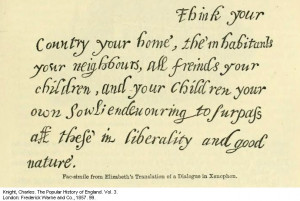 Think your
Country your home, the inhabitants
your neighbours, all freinds your
children, and your children your
own Sowl: endevouring to surpass
all these in liberality and good
nature.
Fac-simile from Elizabeth's Translation of a Dialogue in Xenophon.
Knight, Charles. The Popular History of England. Vol. 3.
London: Frederick Warne and Co., 1857. 99.